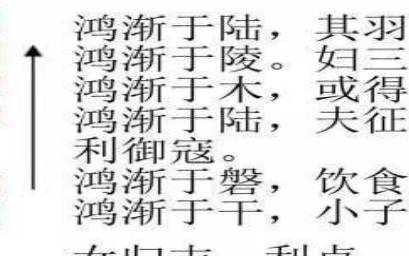 鸿渐于陆，其羽
鸿渐于陵。妇三
鸿渐于木，或得
鸿渐于陆，夫征
利御寇。
鸿渐于磐，饮食
鸿渐于干，小子
女归吉，利贞